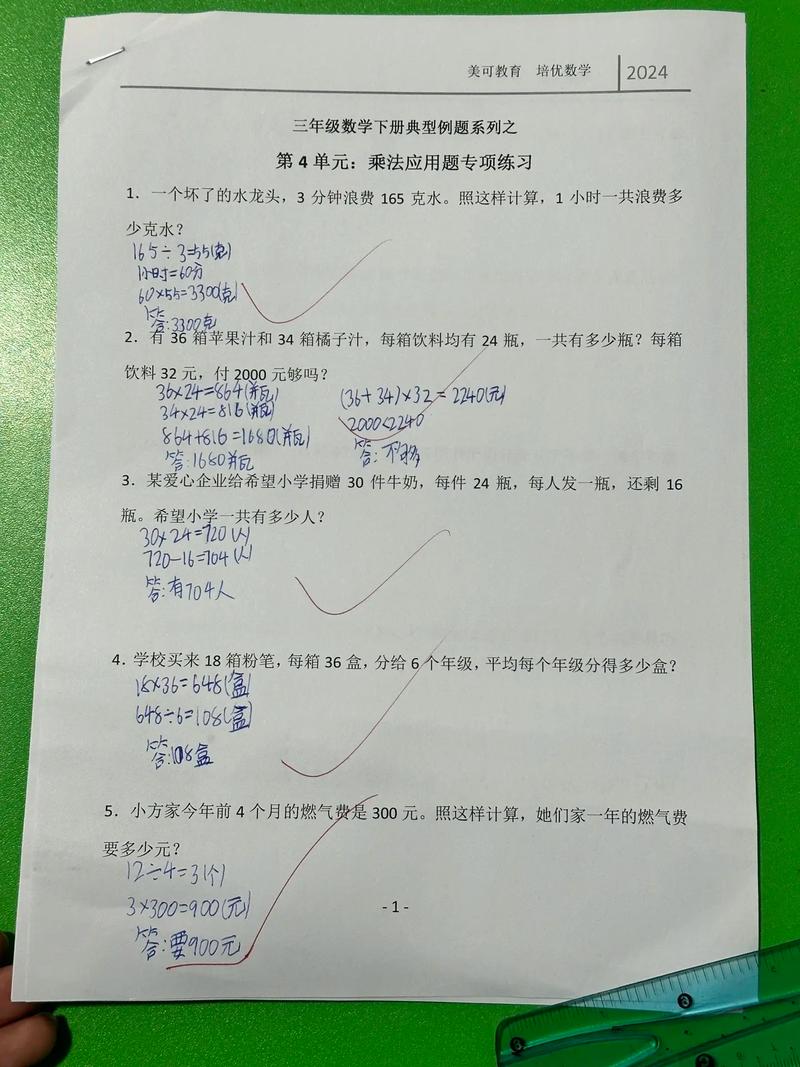 美可教育 培优数学 2024
三年级数学下册典型例题系列之
第 4 单元：乘法应用题专项练习
1．一个坏了的水龙头，3 分钟浪费 165 克水。照这样计算，1 小时一共浪费多
少克水？
165÷3=55(克)
1小时=60分
60×55=3300(克)
答:3300克
2．有 36 箱苹果汁和 34 箱橘子汁，每箱饮料均有 24 瓶，一共有多少瓶？每箱
饮料 32 元，付 2000 元够吗？
36×24=864(瓶) (36+34)×32=2240(元)
34×24=816(瓶) 2000<2240
864+816=1680(瓶) 答:不够
答:1680瓶
3．某爱心企业给希望小学捐赠 30 件牛奶，每件 24 瓶，每人发一瓶，还剩 16
瓶。希望小学一共有多少人？
30×24=720(人)
720-16=704(人)
答:有704人
4．学校买来 18 箱粉笔，每箱 36 盒，分给 6 个年级，平均每个年级分得多少盒？
18×36=648(盒)
648÷6=108(盒)
答:108盒
5．小方家今年前 4 个月的燃气费是 300 元。照这样计算，她们家一年的燃气费
要多少元？
12÷4=3(个)
3×300=900(元)
答:要900元
- 1 -
3
2